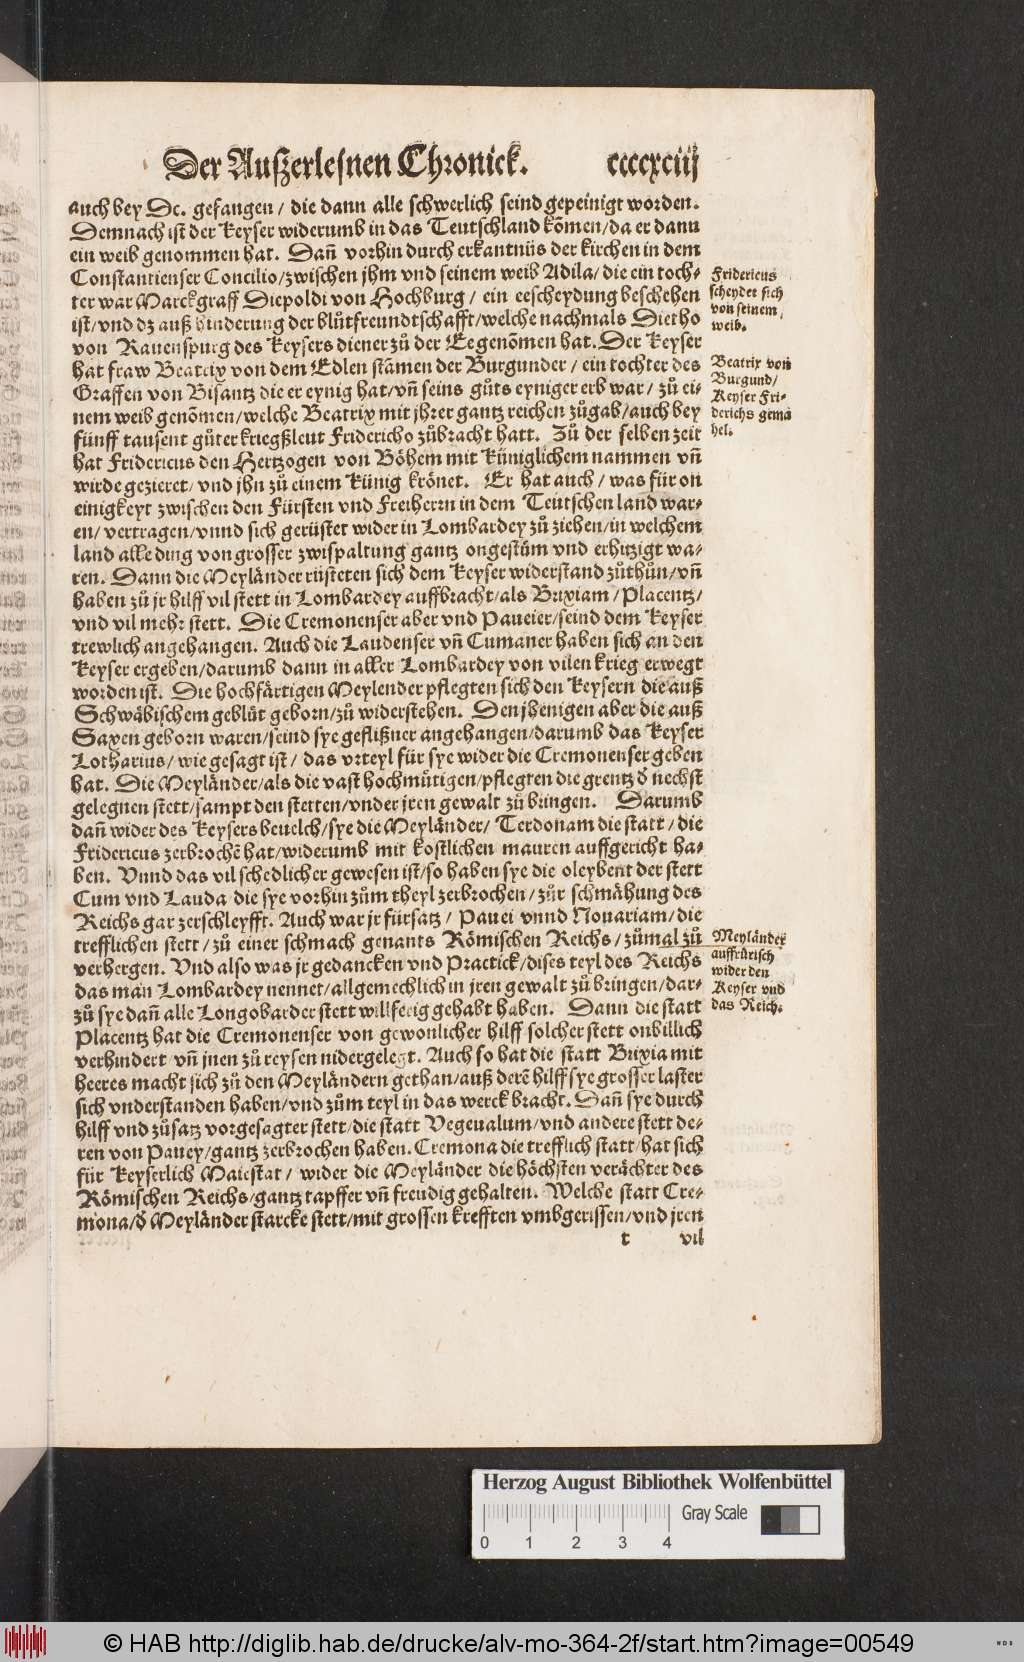 Der Außerlesnen Chronick. ccccxciij
auch bey Dc. gefangen / die dann alle schwerlich seind gepeinigt worden.
Demnach ist der Keyser widerumb in das Teutschland kõmen/da er dann
ein weib genommen hat. Dañ vorhin durch erkantnüs der kirchen in dem
Constantienser Concilio/zwischen jhm vnd seinem weib Adila/ die ein toch-
ter war Marckgraff Diepoldi von Hochburg / ein eescheydung beschehen
ist/vnd dz auß hinderung der blůtfreundtschafft/welche nachmals Dietho
von Rauenspurg des Keysers diener zů der Ee genõmen hat. Der Keyser
hat fraw Beatrix von dem Edlen stãmen der Burgunder / ein tochter des
Graffen von Bisantz die er eynig hat/vñ seins gůts eyniger erb war / zů ei-
nem weib genõmen/welche Beatrix mit jhrer gantz reichen zůgab/auch bey
fünff tausent gůter kriegßleut Fridericho zůbracht hatt. Zů der selben zeit
hat Fridericus den Hertzogen von Böhem mit Küniglichem nammen vñ
wirde gezieret/ vnd jhn zů einem Künig krönet. Er hat auch / was für on
einigkeyt zwischen den Fürsten vnd Freiherrn in dem Teutschen land war-
en/ vertragen/vnnd sich gerüstet wider in Lombardey zů ziehen/in welchem
land alle ding von grosser zwispaltung gantz ongestüm vnd erhitzigt wa-
ren. Dann die Meyländer rüsteten sich dem Keyser widerstand zůthůn/vñ
haben zů jr hilff vil stett in Lombardey auffbracht/als Brixiam / Placentz/
vnd vil mehr stett. Die Cremonenser aber vnd Paueier/seind dem Keyser
trewlich angehangen. Auch die Laudenser vñ Cumaner haben sich an den
Keyser ergeben/darumb dann in aller Lombardey von vilen krieg erwegt
worden ist. Die hochfärtigen Meylender pflegten sich den Keysern die auß
Schwäbischem geblüt geborn/zů widerstehen. Den jhenigen aber die auß
Saxen geborn waren/seind sye geflißner angehangen/darumb das Keyser
Lotharius/ wie gesagt ist / das vrteyl für sye wider die Cremonenser geben
hat. Die Meyländer/als die vast hochmůtigen/pflegten die grentz d̃ nechst
gelegnen stett/sampt den stetten/vnder jren gewalt zů bringen. Darumb
dañ wider des Keysers beuelch/sye die Meyländer/ Terdonam die statt / die
Fridericus zerbrochẽ hat/widerumb mit kostlichen mauren auffgericht ha-
ben. Vnnd das vil schedlicher gewesen ist/so haben sye die oleybent der stett
Cum vnd Lauda die sye vorhin zům theyl zerbrochen / zůr schmähung des
Reichs gar zerschleyfft. Auch war jr fürsatz / Pauei vnnd Nouariam/die
trefflichen stett / zů einer schmach genants Römischen Reichs/zůmal zů
verhergen. Vnd also was jr gedancken vnd Practick/dises teyl des Reichs
das man Lombardey nennet/allgemechlich in jren gewalt zů bringen/dar-
zů sye dañ alle Longobarder stett willferig gehabt haben. Dann die statt
Placentz hat die Cremonenser von gewonlicher hilff solcher stett onbillich
verhindert vñ jnen zů reysen nidergelegt. Auch so hat die statt Brixia mit
heeres macht sich zů den Meyländern gethan/auß derẽ hilff sye grosser laster
sich vnderstanden haben/vnd zům teyl in das werck bracht. Dañ sye durch
hilff vnd zůsatz vorgesagter stett/die statt Vegeualum/vnd andere stett de-
ren von Pauey/gantz zerbrochen haben. Cremona die trefflich statt/hat sich
für Keyserlich Maiestat / wider die Meyländer die höchsten verächter des
Römischen Reichs/gantz tapffer vñ freudig gehalten. Welche statt Cre-
mona/d̃ Meyländer starcke stett/mit grossen krefften vmbgerissen/vnd jren
t vil
Fridericus
scheydet sich
von seinem
weib.
Beatrix von
Burgund/
Keyser Fri-
derichs gemã
hel.
Meyländer
auffrürisch
wider den
Keyser vnd
das Reich.
Herzog August Bibliothek Wolfenbüttel
Gray Scale
0 1 2 3 4
© HAB http://diglib.hab.de/drucke/alv-mo-364-2f/start.htm?image=00549